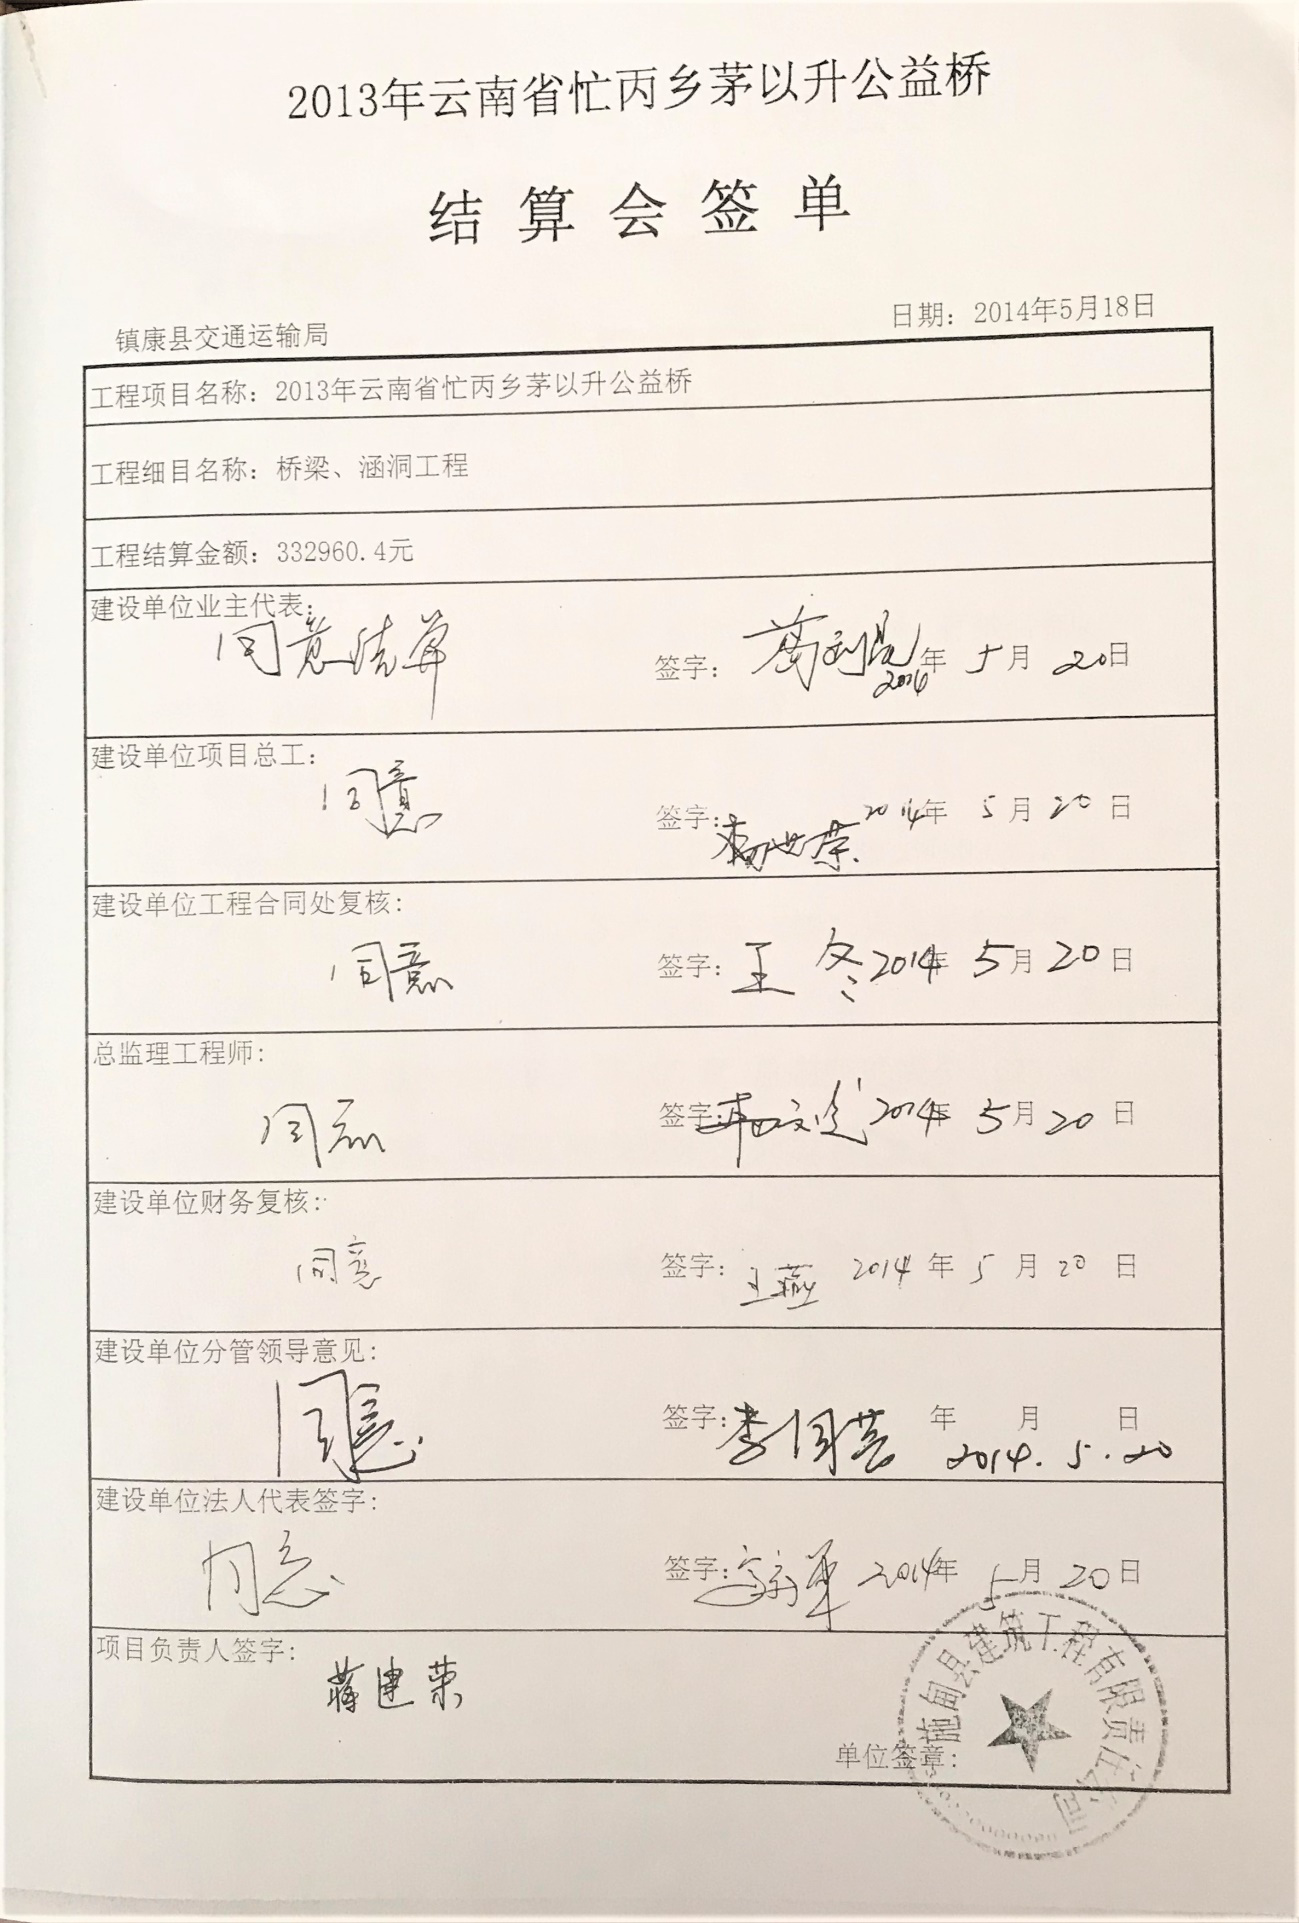 2013年云南省忙丙乡茅以升公益桥
结算会签单
镇康县交通运输局
日期：2014年5月18日
工程项目名称：2013年云南省忙丙乡茅以升公益桥
工程细目名称：桥梁、涵洞工程
工程结算金额：332960.4元
建设单位业主代表：
同意结算
签字： 2014年 5月 20日
建设单位项目总工：
同意
签字：杨世荣 2014年 5月 20日
建设单位工程合同处复核：
同意
签字：王冬 2014年 5月 20日
总监理工程师：
同意
签字： 2014年 5月 20日
建设单位财务复核：
同意
签字：王燕 2014年 5月 20日
建设单位分管领导意见：
同意
签字：李国芸 年 月 日
2014.5.20
建设单位法人代表签字：
同意
签字： 2014年 5月 20日
项目负责人签字：
蒋建荣
单位签章：
施甸县建筑工程有限责任公司